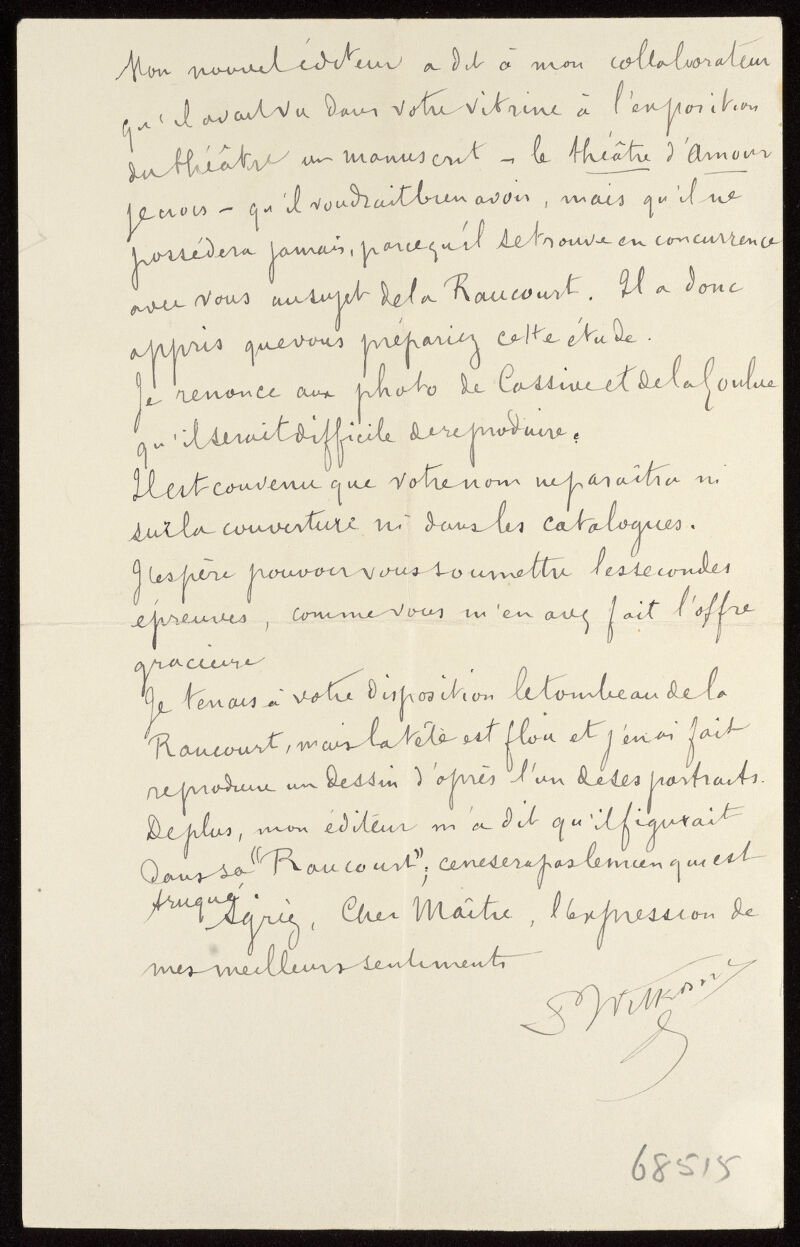 Mon nouvel éditeur a dit à mon collaborateur
qu'il avait vu dans votre vitrine à l'exposition
du théâtre un manuscrit – le théâtre d'Amour
je crois – qu'il voudrait bien avoir, mais qu'il ne
possédera jamais, parcequ'il se trouve en concurrence
avec vous au sujet de la Raucourt. Il a donc
appris que vous prépariez cette étude.
Je renonce aux photo de Cassive et de la Goulue
qu'il serait difficile de reproduire.
Il est convenu que votre nom ne paraîtra ni
sur la couverture ni dans les catalogues.
J'espère pouvoir vous soumettre les secondes
épreuves, comme vous m'en avez fait l'offre
gracieuse
Je tenais à votre disposition le tombeau de la
Raucourt, mais la tête est floue et j'en ai fait
reproduire un dessin d'après l'un de ses portraits.
De plus, mon éditeur m'a dit qu'il figurait
dans sa "Raucourt"; ce ne sera pas le mien qui est
truqué.
Agréez, Cher Maître, l'expression de
mes meilleurs sentiments
Witkowski
68515